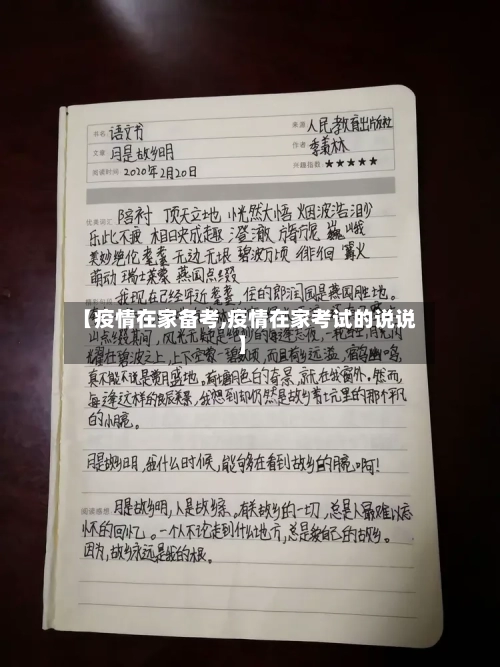 书名 语文书 来源 人民教育出版社
文章 月是故乡明 作者 季羡林
阅读时间 2020年2月20日 兴趣指数 ★★★★★
优美词汇 陪衬 顶天立地 恍然大悟 烟波浩渺
乐此不疲 相映成趣 澄澈 旖旎 巍峨
美妙绝伦 耄耋 无边无垠 碧波万顷 徘徊 篝火
萌动 瑞士莱蒙 燕园 点缀
我现在已经年近耄耋,住的郎润园是燕园胜地。
【疫情在家备考,疫情在家考试的说说
】
山点缀其间,风光无疑是绝妙的
碧波之上,上下空 碧 顷,而且荷香远溢,宿鸟幽鸣,
真不能不说是赏月胜地。荷塘月色的奇景,就在我窗外。然而,
每逢这样的良辰美景,我想到却仍然是故乡苇坑里的那个平凡
的小月亮。
月是故乡明,我什么时候,能够再看到故乡的月亮啊!
阅读感想 月是故乡明,人是故乡亲。有关故乡的一切,总是人最难以忘
怀的回忆。一个人不论走到什么地方,总是爱自己的故乡。
因为,故乡永远是我的根。